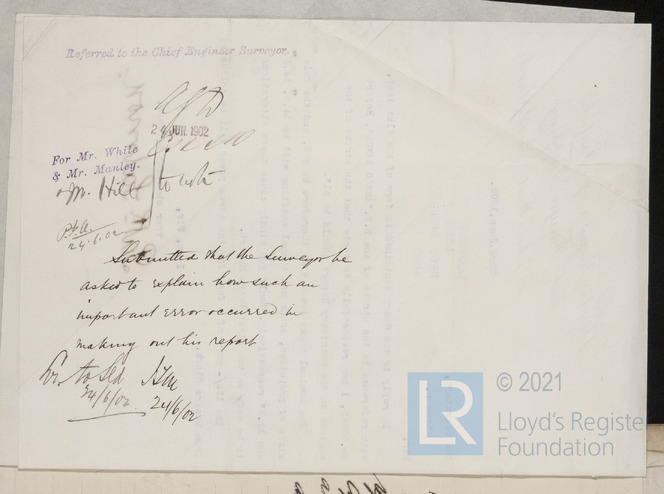 Referred to the Chief Engineer Surveyor.
24 JUN. 1902
For Mr. White
& Mr. Manley.
& Mr. Hill to note
24.6.02
Submitted that the Surveyor be
asked to explain how such an
important error occurred in
making out his report
24/6/02 24/6/02
LR
© 2021
Lloyd's Registe
Foundation